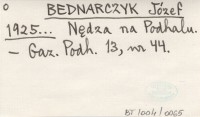 o BEDNARCZYK Józef
1925... Nędza na Podhalu.
– Gaz. Podh. 13, nr 44.
BT/004/0065